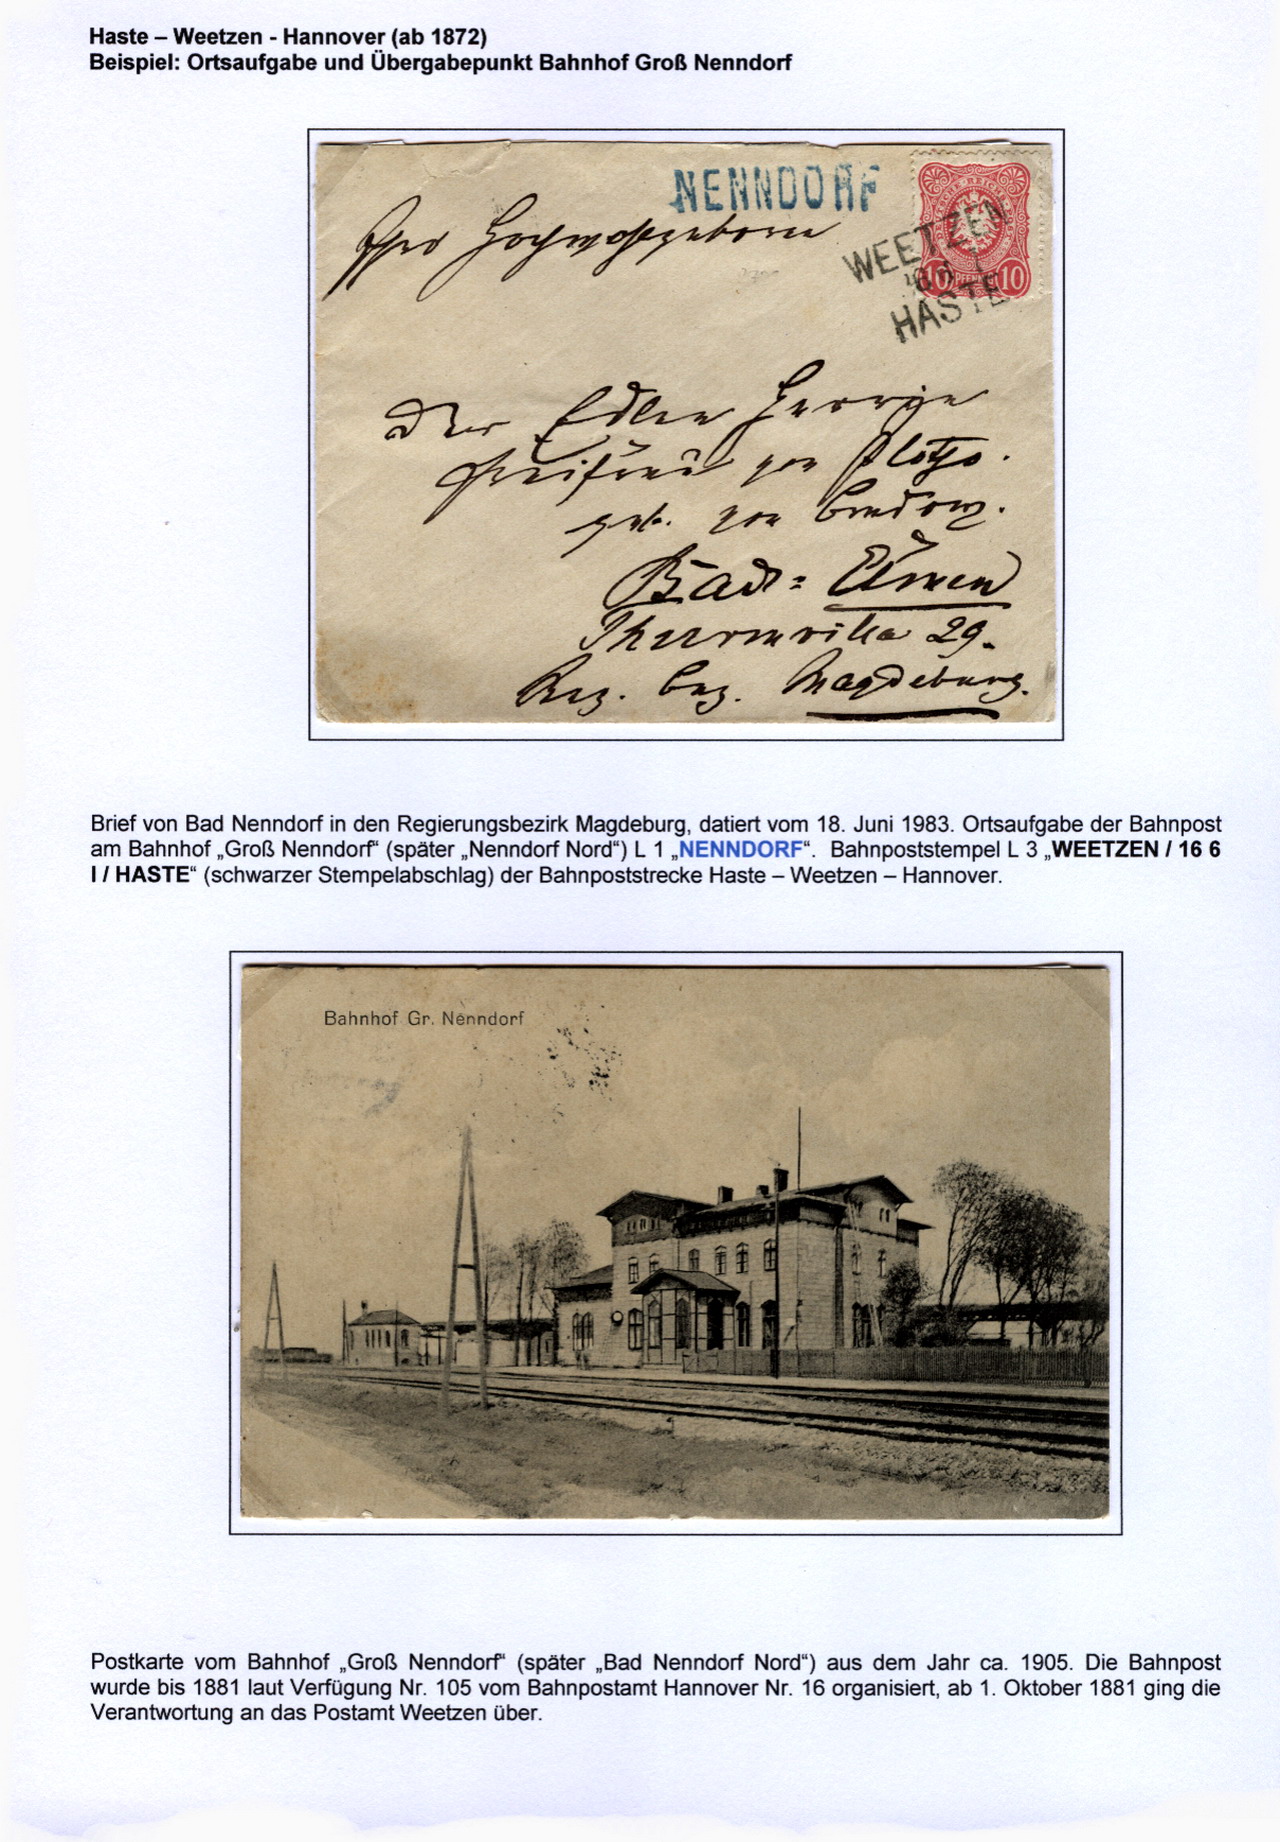 Haste – Weetzen - Hannover (ab 1872)
Beispiel: Ortsaufgabe und Übergabepunkt Bahnhof Groß Nenndorf
NENNDORF
WEETZEN
HASTE
10 PFENNIG 10
Hochwohlgeboren
Der Edlen
von Plotho.
geb. von
Bad= Elmen
29.
Reg. bez. Magdeburg.
Brief von Bad Nenndorf in den Regierungsbezirk Magdeburg, datiert vom 18. Juni 1983. Ortsaufgabe der Bahnpost
am Bahnhof „Groß Nenndorf“ (später „Nenndorf Nord“) L 1 „NENNDORF“. Bahnpoststempel L 3 „WEETZEN / 16 6
I / HASTE“ (schwarzer Stempelabschlag) der Bahnpoststrecke Haste – Weetzen – Hannover.
Bahnhof Gr. Nenndorf
Postkarte vom Bahnhof „Groß Nenndorf“ (später „Bad Nenndorf Nord“) aus dem Jahr ca. 1905. Die Bahnpost
wurde bis 1881 laut Verfügung Nr. 105 vom Bahnpostamt Hannover Nr. 16 organisiert, ab 1. Oktober 1881 ging die
Verantwortung an das Postamt Weetzen über.